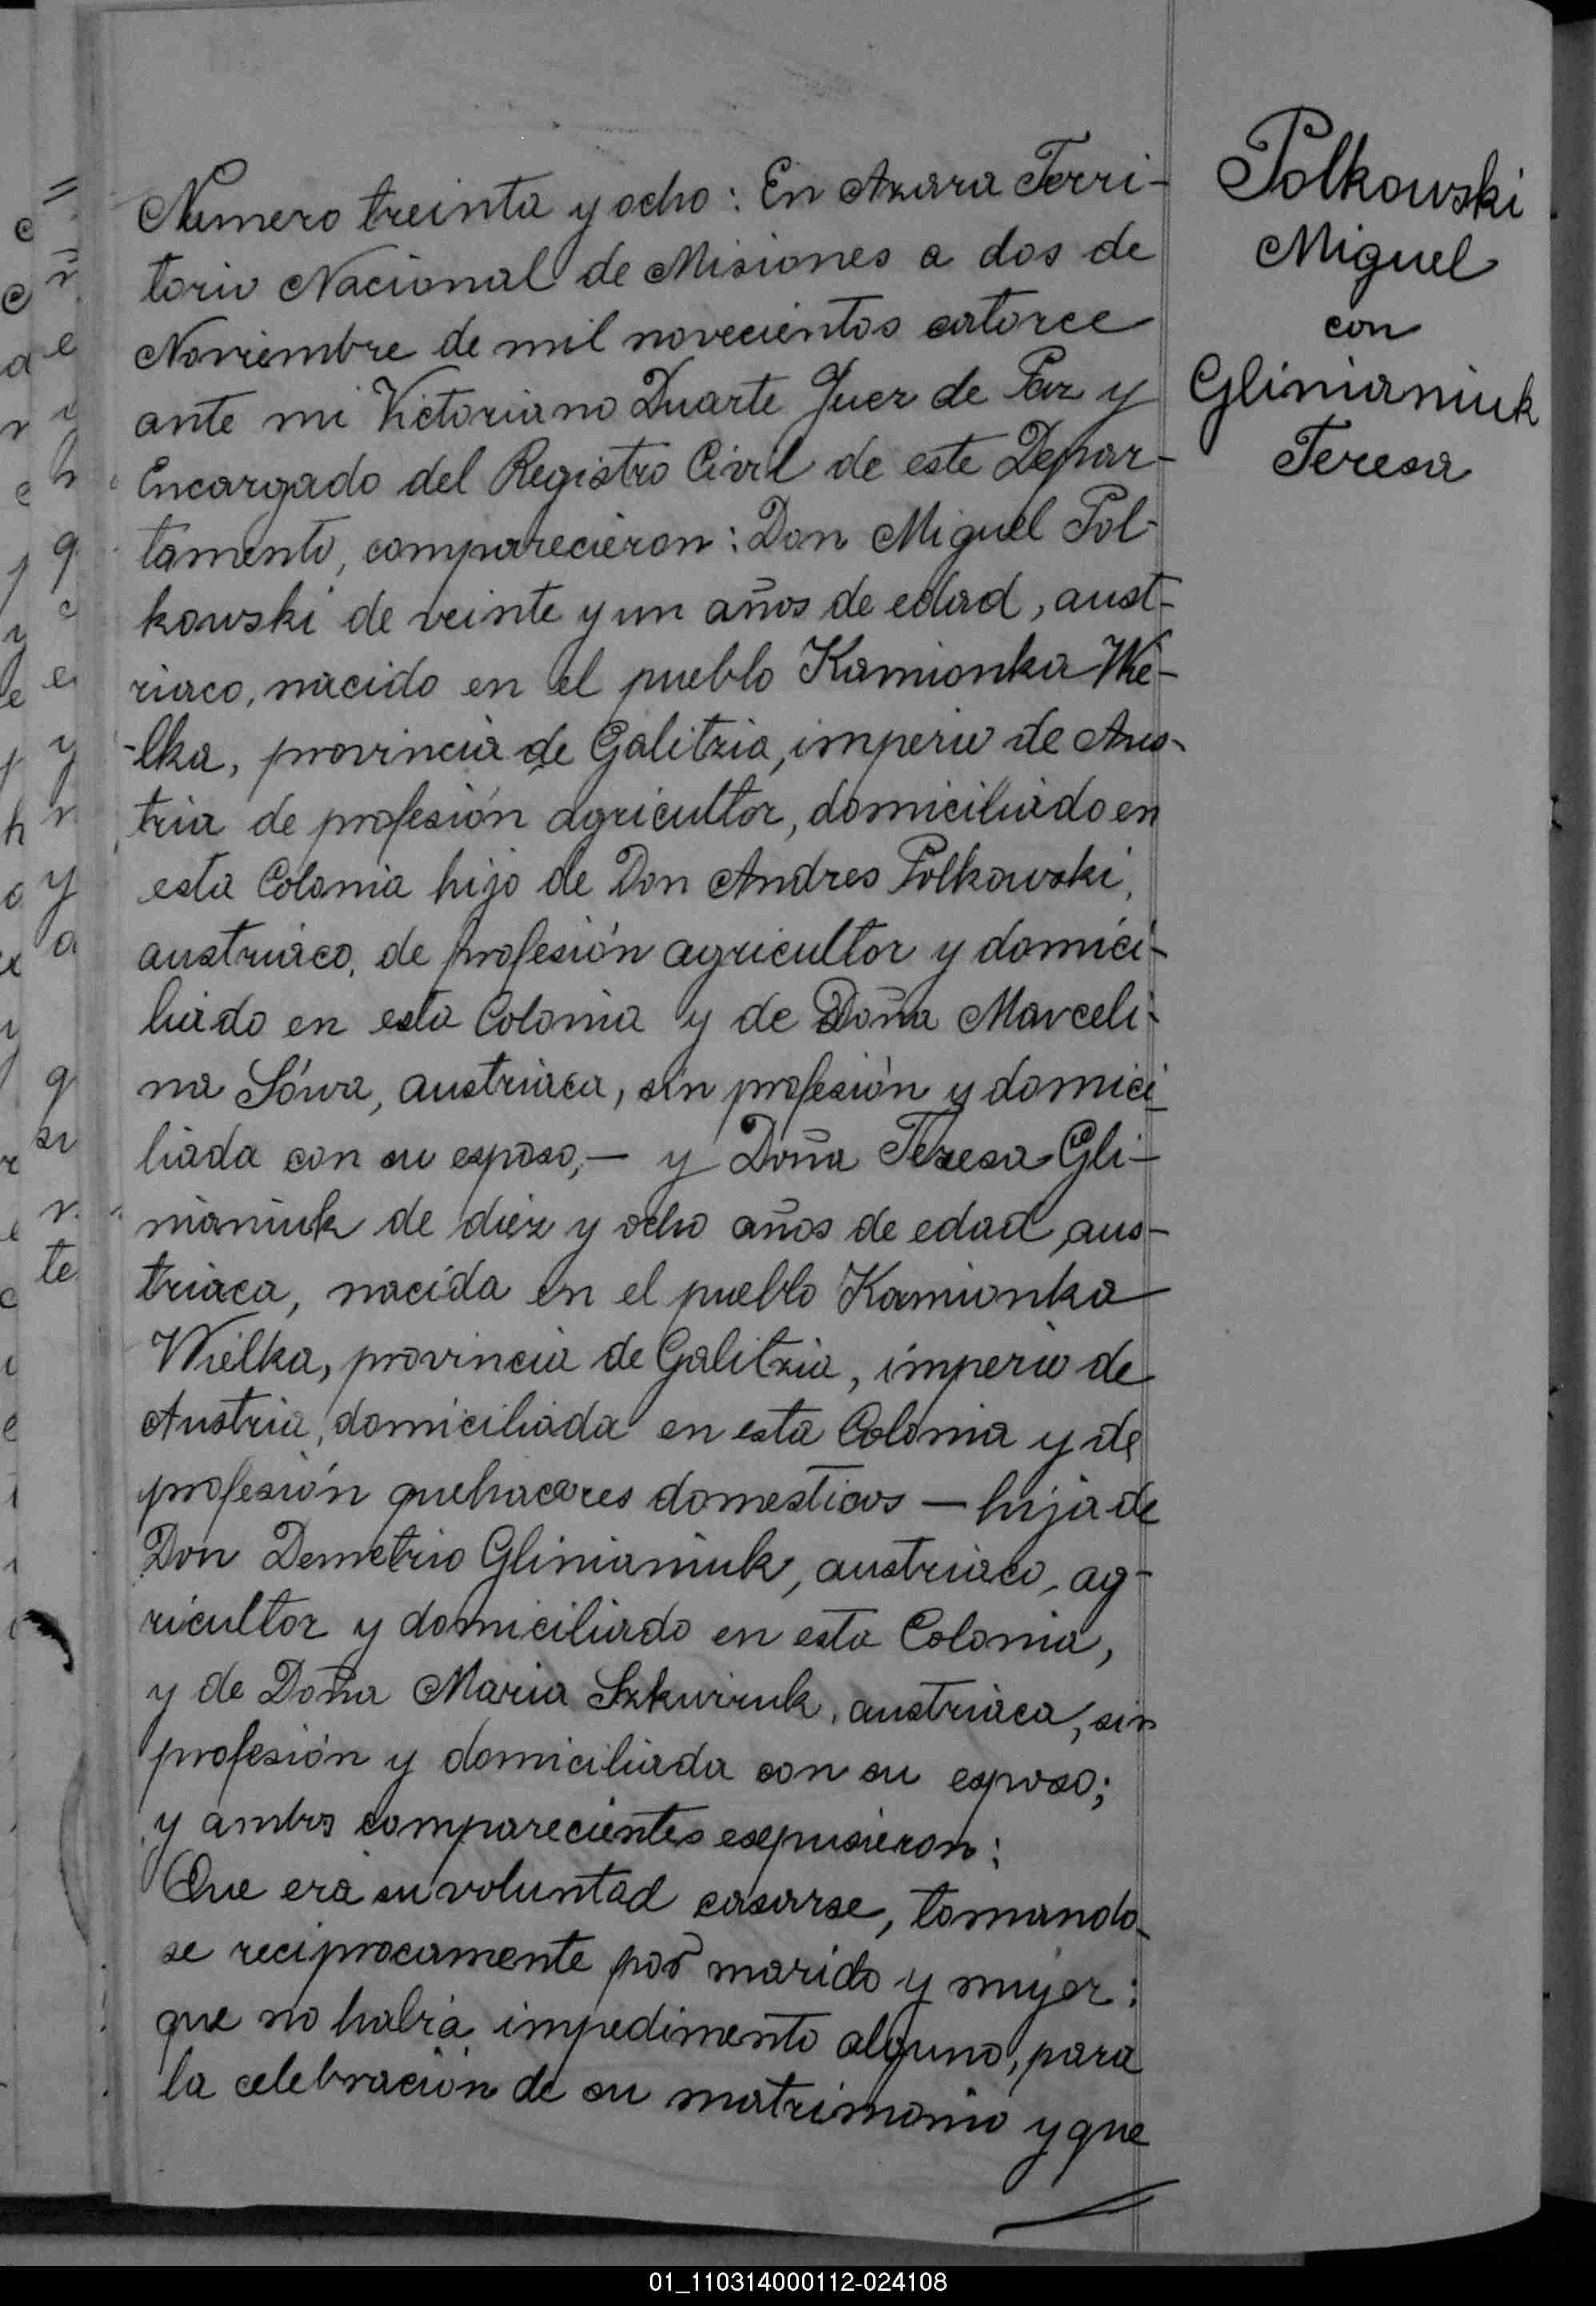 Numero treinta y ocho: En Azara Terri-
torio Nacional de Misiones a dos de
Noviembre de mil novecientos catorce
ante mi Victoriano Duarte Juez de Paz y
Encargado del Registro Civil de este Depar-
tamento, comparecieron: Don Miguel Pol-
kowski de veinte y un años de edad, aust-
riaco, nacido en el pueblo Kamionka Wie-
-lka, provincia de Galitzia, imperio de Aus-
tria de profesión agricultor, domiciliado en
esta Colonia hijo de Don Andres Polkowski,
austriaco, de profesión agricultor y domici-
liado en esta Colonia y de Doña Marceli-
na Sówa, austriaca, sin profesión y domici-
liada con su esposo,— y Doña Teresa Gli-
nianiuk de diez y ocho años de edad, aus-
triaca, nacida en el pueblo Kamionka
Wielka, provincia de Galitzia, imperio de
Austria, domiciliada en esta Colonia y de
profesión quehaceres domesticos — hija de
Don Demetrio Glinianiuk, austriaco, ag-
ricultor y domiciliado en esta Colonia,
y de Doña Maria Szkwiruk, austriaca, sin
profesión y domiciliada con su esposo;
y ambos comparecientes esepusieron:
Que era su voluntad casarse, tomando-
se reciprocamente por marido y mujer:
que no habia impedimento alguno, para
la celebración de su matrimonio y que
Polkowski
Miguel
con
Glinianiuk
Teresa
01_110314000112-024108